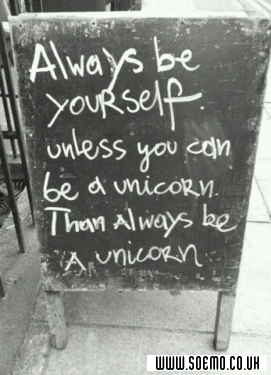 Always be
yourself.
unless you can
be a unicorn.
Than Always be
A unicorn
WWW.SOEMO.CO.UK